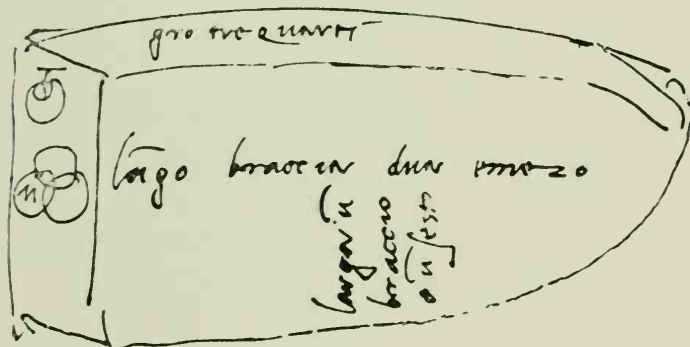 gro tre quarti
lūgo braccia dua e mezo
largo ū
braccio
ū sesto